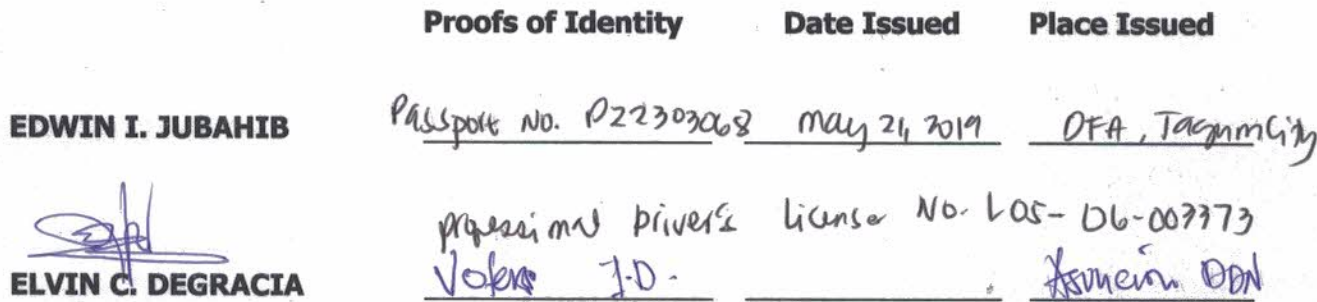 Proofs of Identity Date Issued Place Issued
EDWIN I. JUBAHIB Passport No. P22303068 may 21, 2019 DFA, Tagum City
professional Driver's License No. L05-06-003373
ELVIN C. DEGRACIA Voters I.D. Asuncion DDN